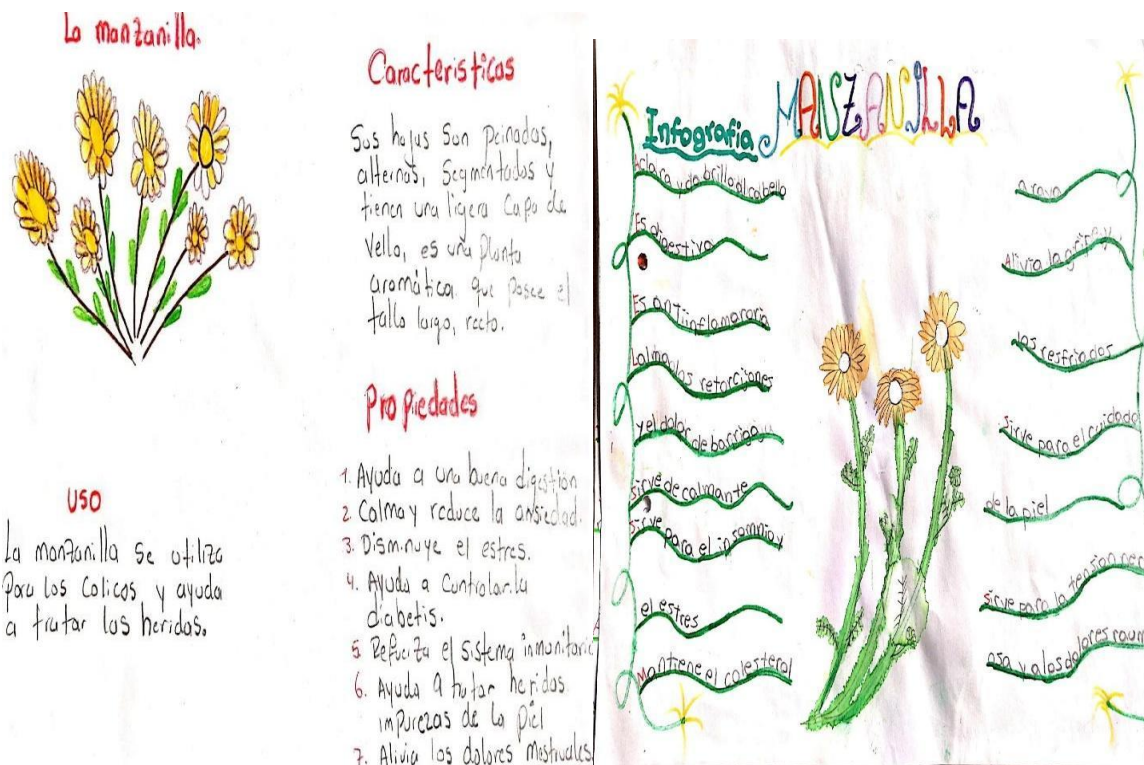 La manzanilla.
Caracteristicas
Sus hojas Son peinadas,
alternas, Segmentadas y
tienen una ligera Capa de
Vello, es una planta
aromática. que Posee el
tallo largo, recto.
Propiedades
1. Ayuda a una buena digestión
2. Calma y reduce la ansiedad.
3. Disminuye el estres.
4. Ayuda a Controlar la
diabetis.
5 Refuerza el sistema inmunitario
6. Ayuda a tratar heridas
impurezas de la piel
7. Alivia los dolores mestruales
USO
La manzanilla se utiliza
Para los Colicos y ayuda
a tratar las heridas.
Infografia MANZANILLA
Aclara y da brillo al cabello
Es digestiva
Es antiinflamaroria
Calma los retorcijones
y el dolor de barriga
Sirve de calmante
Sirve para el insomnio y
el estres
Mantiene el colesterol
a raya
Alivia la gripe y
los resfriados
Sirve para el cuidado
de la piel
Sirve para la tension ner
osa y a los dolores